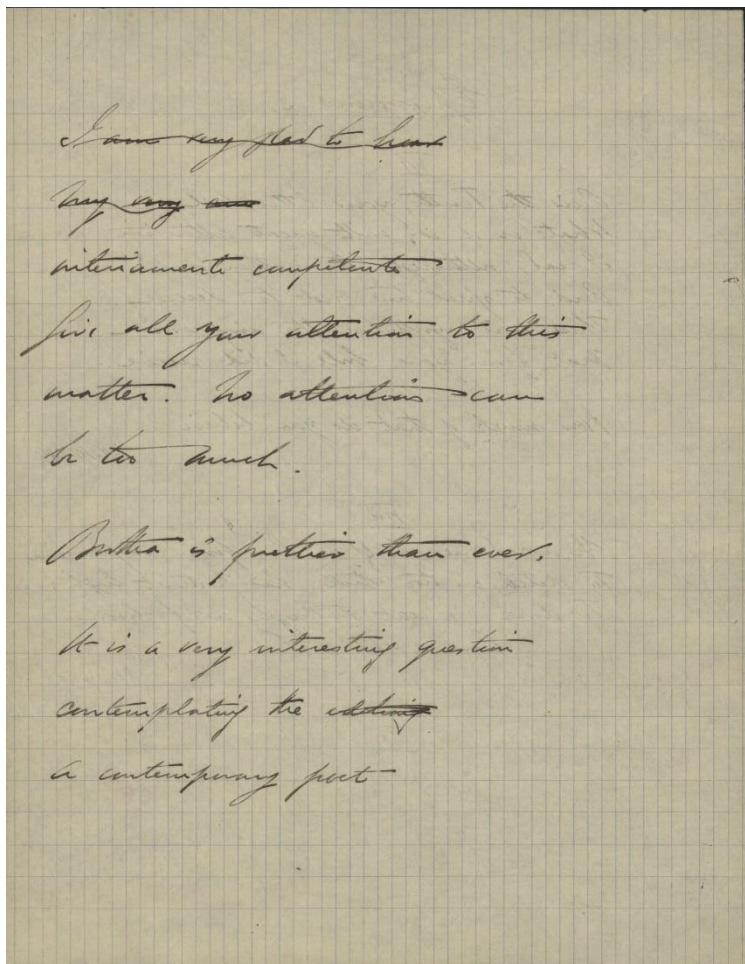 I am very glad to hear
my very
interiamente competente
Give all your attention to this
matter. No attention can
be too much.
Bertha is prettier than ever.
It is a very interesting question
contemplating the
a contemporary poet